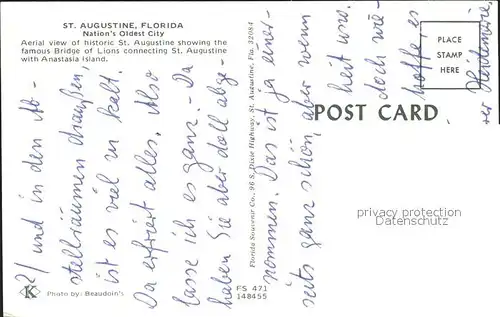 ST. AUGUSTINE, FLORIDA
Nation's Oldest City
Aerial view of historic St. Augustine showing the
famous Bridge of Lions connecting St. Augustine
with Anastasia Island.
2/ und in den Ab-
stellräumen draußen,
ist es viel zu kalt.
Da erfriert alles. Also
lasse ich es ganz. - Da
haben Sie aber doll abge-
nommen. Das ist ja einer-
seits ganz schön, aber wenn
heit usw.
doch wie-
hoffe, es
Heidemarie,
Florida Souvenir Co., 96 S. Dixie Highway, St. Augustine, Fla. 32084
POST CARD
PLACE
STAMP
HERE
privacy protection
Datenschutz
K
Photo by: Beaudoin's
FS 471
148455